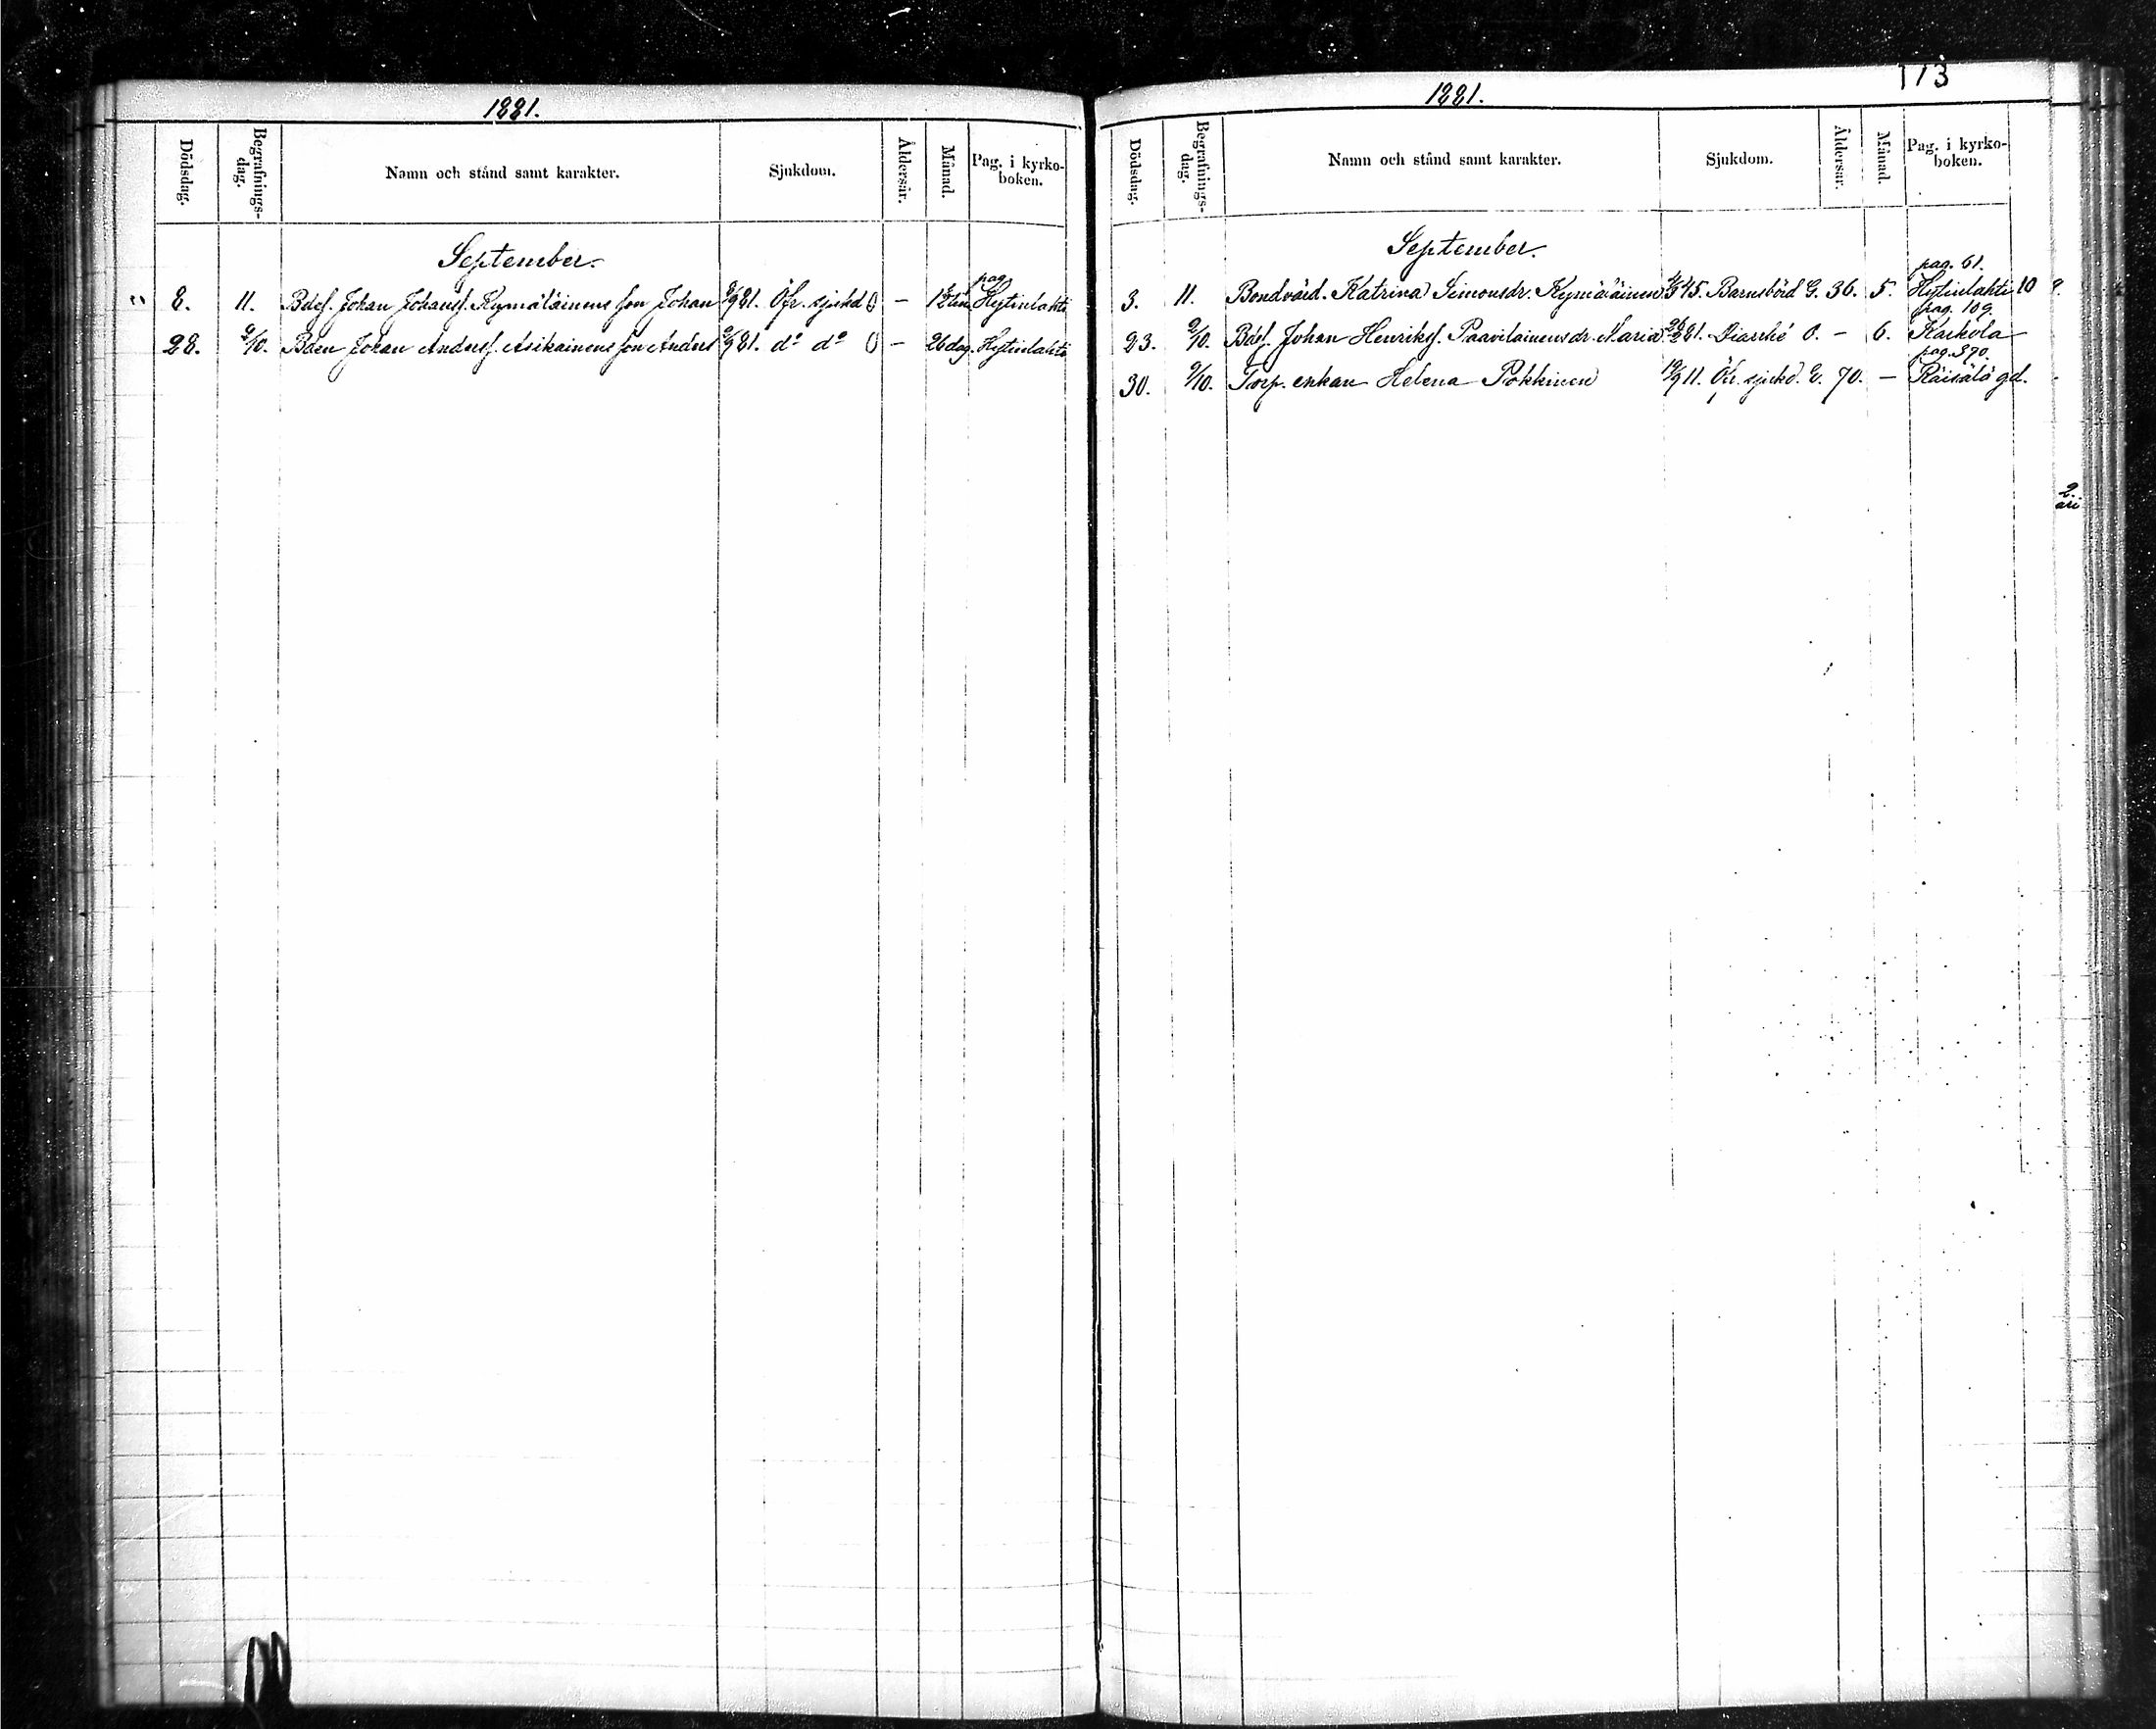 1881.
Dödsdag. Begrafnings-dag. Namn och stånd samt karakter. Sjukdom. Åldersår. Månad. Pag. i kyrko-boken.
September.
pag.
8. 11. Bdes. Johan Johanss. Kymäläinens son Johan 81. Öfr. sjukd O — Hytinlahti
28. 2/10. Bden Johan Anderss. Asikainens son Anders 2/9 81. do do O — 26 dag. Hytinlahti
173
1881.
Dödsdag. Begrafnings-dag. Namn och stånd samt karakter. Sjukdom. Åldersår. Månad. Pag. i kyrko-boken.
September.
pag. 61.
3. 11. Bondvärd. Katrina Simonsdr. Kymäläinen 45. Barnsbörd G. 36. 5. Hytinlahti 10
pag. 109.
23. 2/10. Bds. Johan Henrikss. Paavilainens dr. Maria 81. Diarrhé O. — 6. Kaskola
pag. 370.
30. 9/10. Torp. enkan Helena Pokkinen 19/9 11. Öfr. sjukd. E. 70. — Räisälä gd.